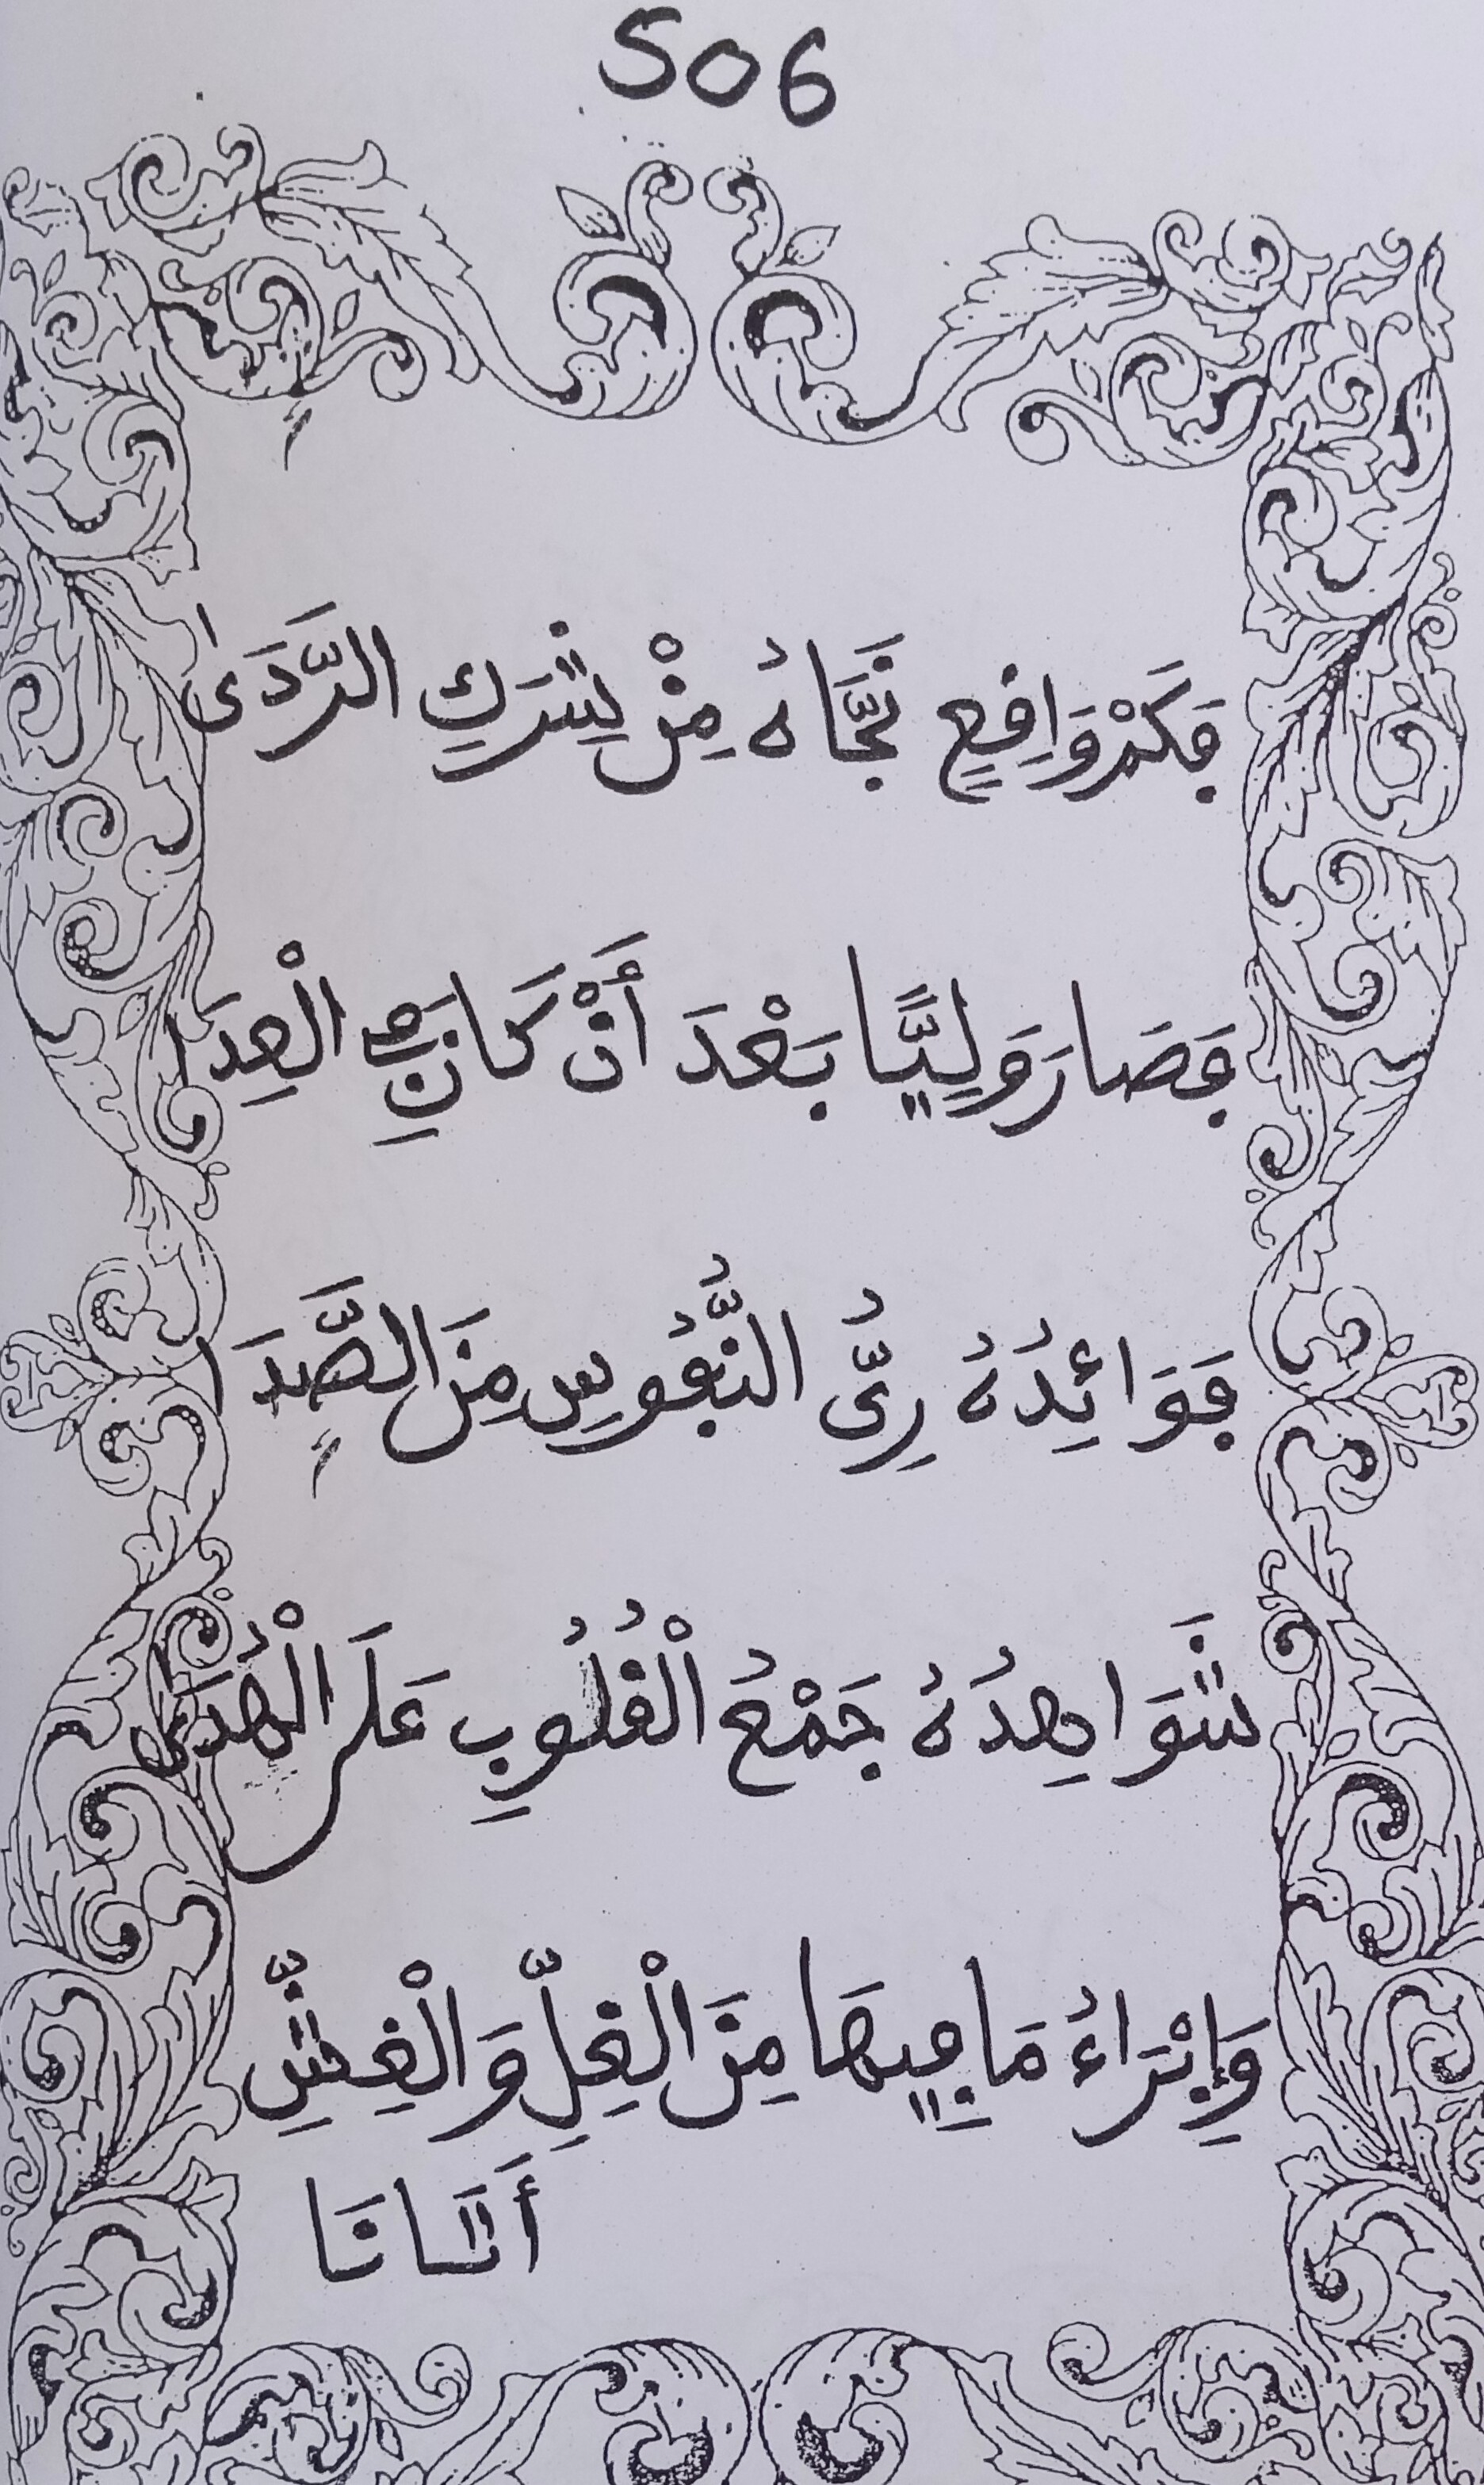 506
فَكَمْ وَاقِعٍ نَجَّاهُ مِنْ شِرَكِ الرَّدَىٰ
فَصَارَ وَلِيًّا بَعْدَ أَنْ كَانَ فِي الْعِدَا
فَوَائِدُهُ رِيُّ النُّفُوسِ مِنَ الصَّدَا
شَوَاهِدُهُ جَمْعُ الْقُلُوبِ عَلَى الْهُدَى
وَإِبْرَاءُ مَا فِيهَا مِنَ الْغِلِّ وَالْغِشِّ
أَتَانَا